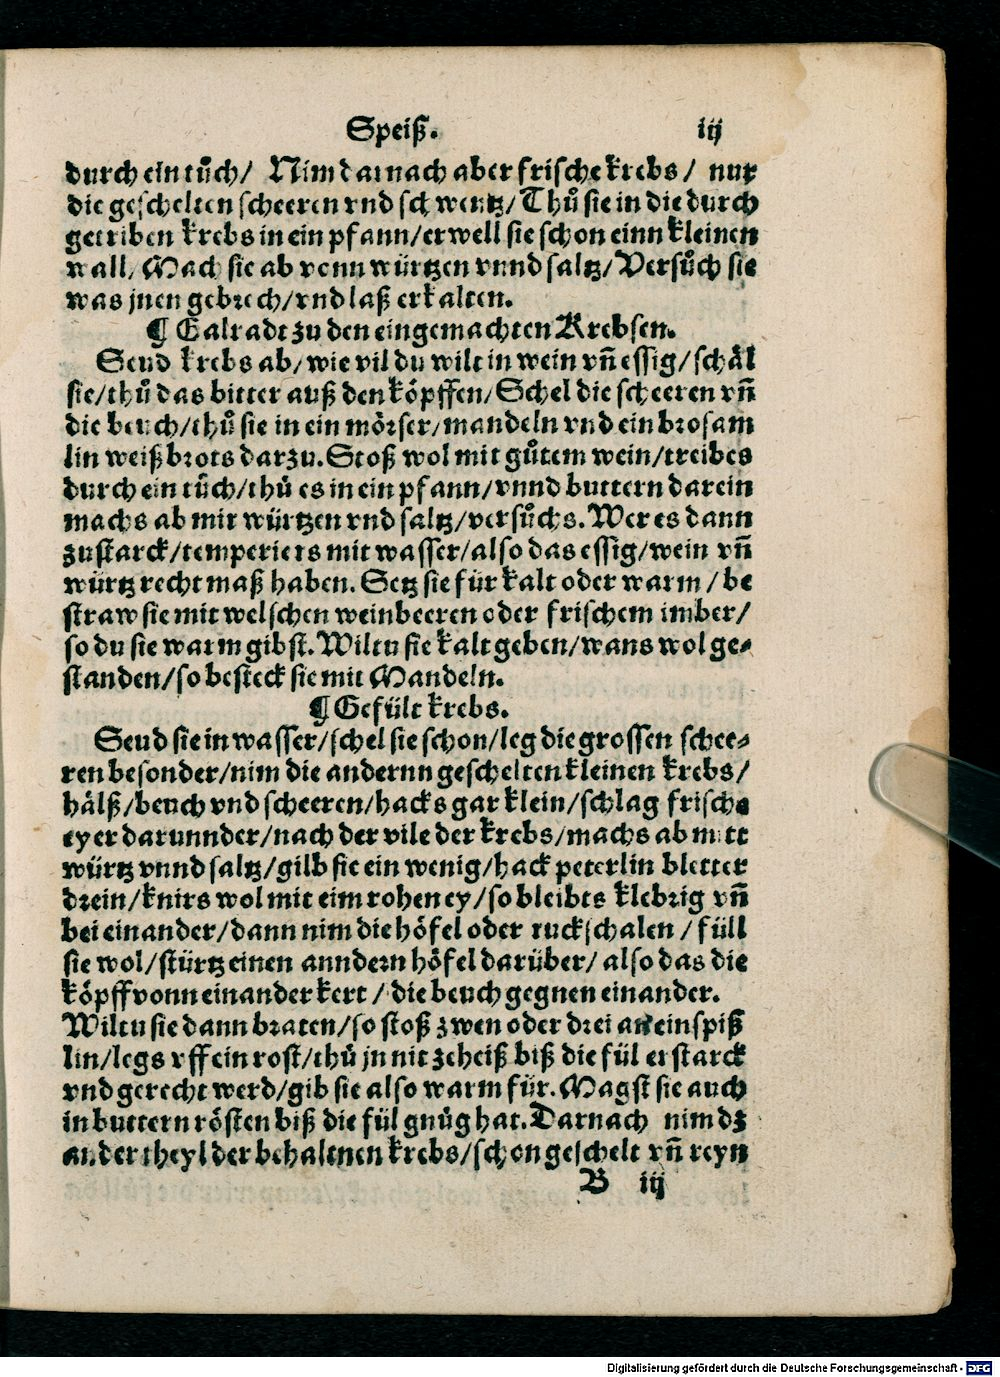 Speiß. iij
durch ein tůch/ Nim darnach aber frische krebs/ nur
die geschelten scheeren vnd schwentz/ Thů sie in die durch
getriben krebs in ein pfann/ erwell sie schon einn kleinen
wall, Mach sie ab vonn würtzen vnnd saltz/ Versůch sie
was jnen gebrech/ vnd laß erkalten.
¶ Galradt zu den eingemachten Krebsen.
Seud krebs ab/ wie vil du wilt in wein vñ essig/ schäl
sie/ thů das bitter auß den köpffen/ Schel die scheeren vñ
die beuch/ thů sie in ein mörser/ mandeln vnd ein brosam
lin weißbrots darzu. Stoß wol mit gůtem wein/ treibes
durch ein tůch/ thů es in ein pfann/ vnnd buttern darein
machs ab mit würtzen vnd saltz/ versůchs. Wer es dann
zustarck/ temperiers mit wasser/ also das essig/ wein vñ
würtz recht maß haben. Setz sie für kalt oder warm/ be
straw sie mit welschen weinbeeren oder frischem imber/
so du sie warm gibst. Wiltu sie kalt geben/ wans wol ge-
standen/ so besteck sie mit Mandeln.
¶ Gefült krebs.
Seud sie in wasser/ schel sie schon/ leg die grossen schee-
ren besonder/ nim die andernn geschelten kleinen krebs/
hälß/ beuch vnd scheeren/ hacks gar klein/ schlag frische
eyer darunnder/ nach der vile der krebs/ machs ab mitt
würtz vnnd saltz/ gilb sie ein wenig/ hack peterlin bletter
drein/ knirs wol mit eim rohen ey/ so bleibts klebrig vñ
bei einander/ dann nim die höfel oder ruckschalen/ füll
sie wol/ stürtz einen anndern höfel darüber/ also das die
köpff vonn einander kert/ die beuch gegnen einander.
Wiltu sie dann braten/ so stoß zwen oder drei an ein spiß
lin/ legs vff ein rost/ thů jn nit zeheiß biß die fül erstarck
vnd gerecht werd/ gib sie also warm für. Magst sie auch
in buttern rösten biß die fül gnůg hat. Darnach nim dz
ander theyl der behaltnen krebs/ schon geschelt vñ reyn
B iij
Digitalisierung gefördert durch die Deutsche Forschungsgemeinschaft - DFG